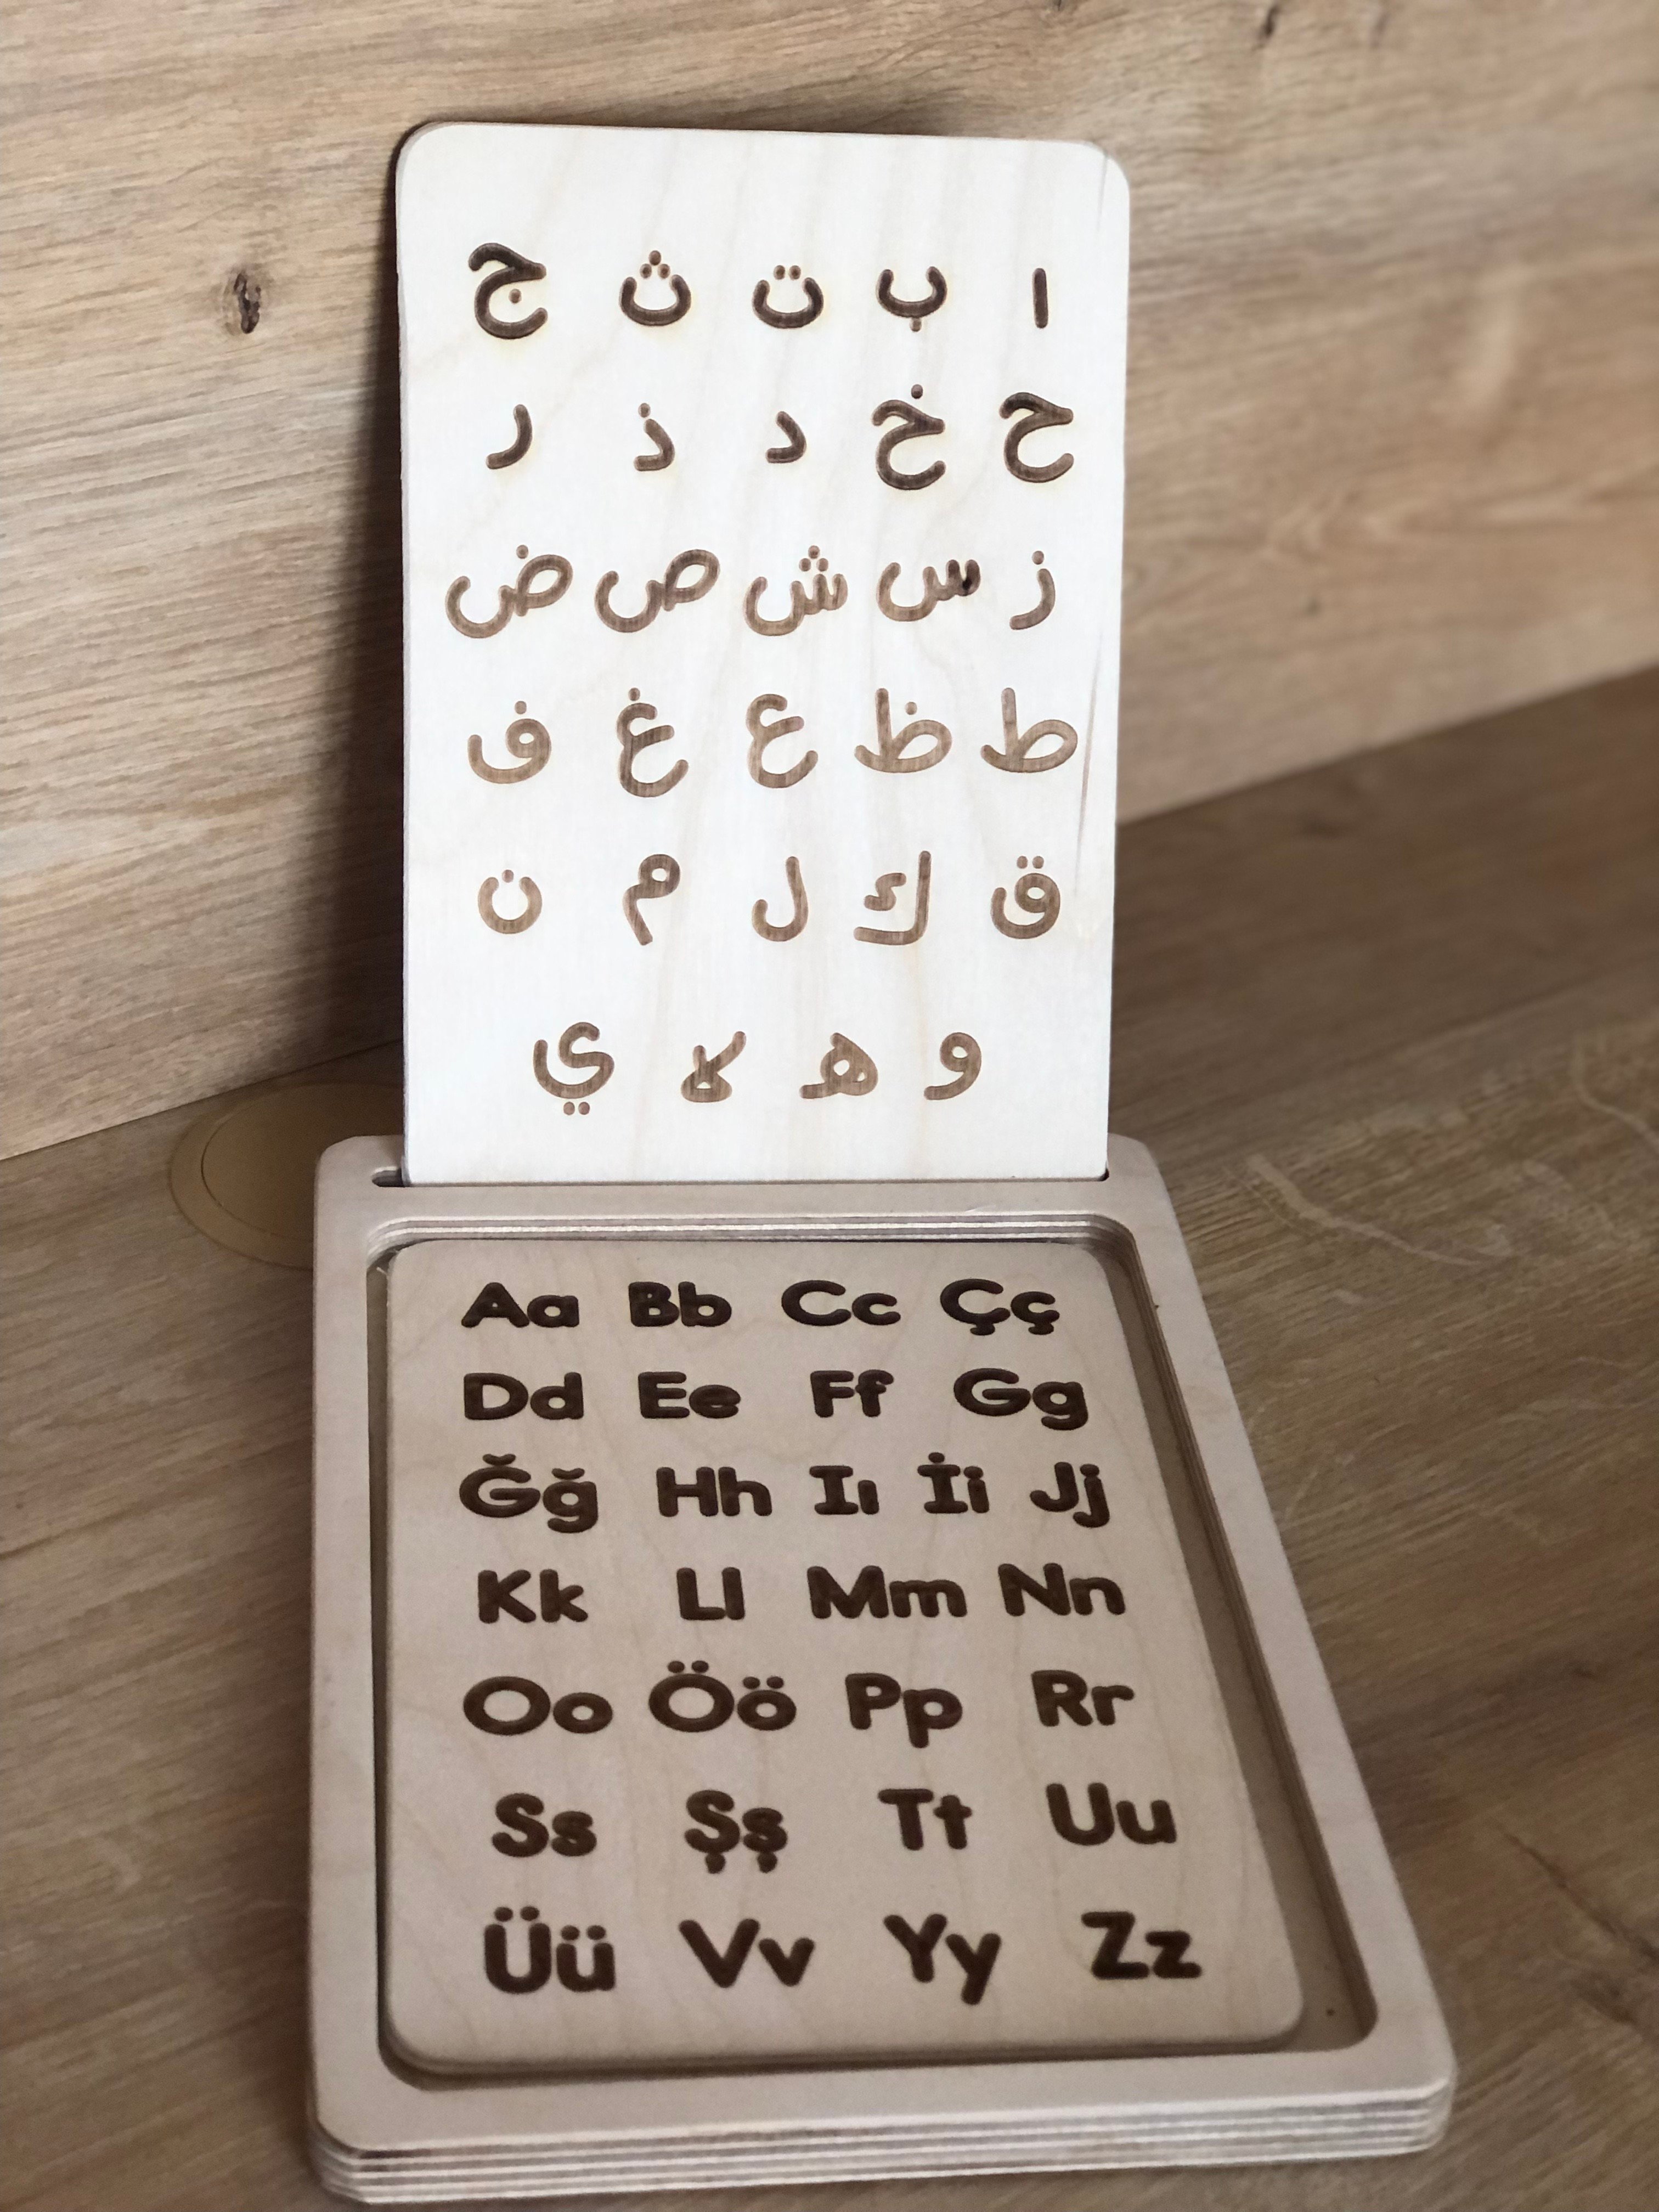 ا ب ت ث ج
ح خ د ذ ر
ز س ش ص ض
ط ظ ع غ ف
ق ك ل م ن
و ه لا ي
Aa Bb Cc Çç
Dd Ee Ff Gg
Ğğ Hh Iı İi Jj
Kk Ll Mm Nn
Oo Öö Pp Rr
Ss Şş Tt Uu
Üü Vv Yy Zz